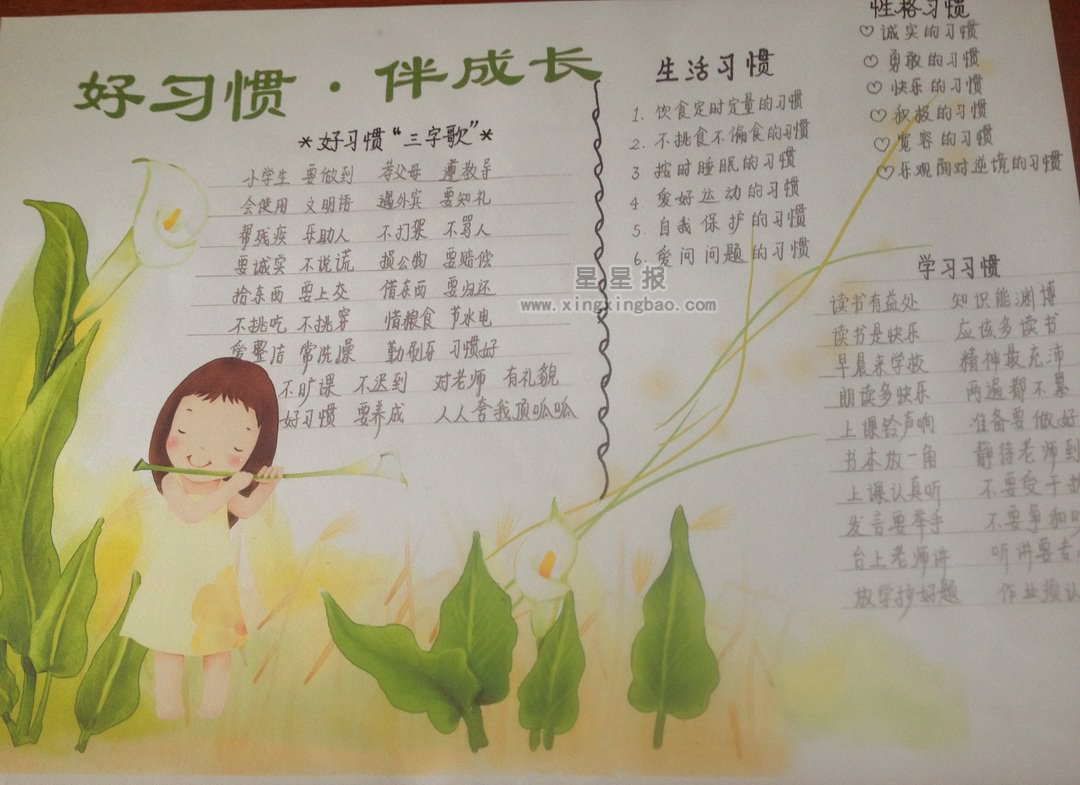 好习惯·伴成长
*好习惯“三字歌”*
小学生 要做到 孝父母 遵教导
会使用 文明语 遇外宾 要知礼
帮残疾 乐助人 不打架 不骂人
要诚实 不说谎 损公物 要赔偿
拾东西 要上交 借东西 要归还
不挑吃 不挑穿 惜粮食 节水电
爱整洁 常洗澡 勤刷牙 习惯好
不旷课 不迟到 对老师 有礼貌
好习惯 要养成 人人夸我顶呱呱
生活习惯
1. 饮食定时定量的习惯
2. 不挑食不偏食的习惯
3 按时睡眠的习惯
4 爱好运动的习惯
5. 自我保护的习惯
6. 爱问问题的习惯
星星报
www.xingxingbao.com
性格习惯
♡诚实的习惯
♡勇敢的习惯
♡快乐的习惯
♡积极的习惯
♡宽容的习惯
♡乐观面对逆境的习惯
学习习惯
读书有益处 知识能渊博
读书是快乐 应该多读书
早晨来学校 精神最充沛
朗读多快乐 两遍都不累
上课铃声响 准备要做好
书本放一角 静待老师到
上课认真听 不要受干扰
发言要举手 不要争和
台上老师讲 听讲要专
放学抄好题 作业须认